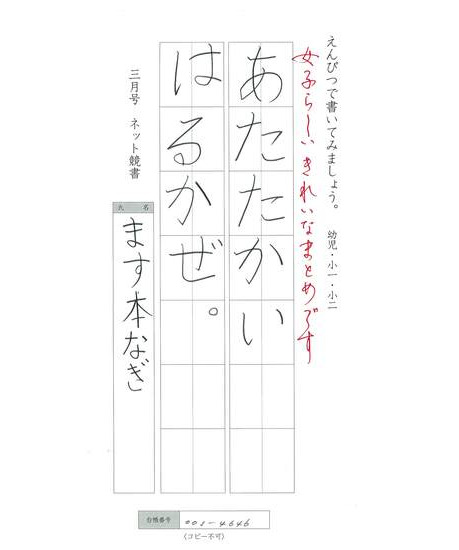 えんぴつで書いてみましょう。 幼児・小一・小二
女子らしい きれいなまとめです
あたたかい
はるかぜ。
三月号 ネット競書
氏 名
ます本なぎ
台帳番号 001-4646
(コピー不可)